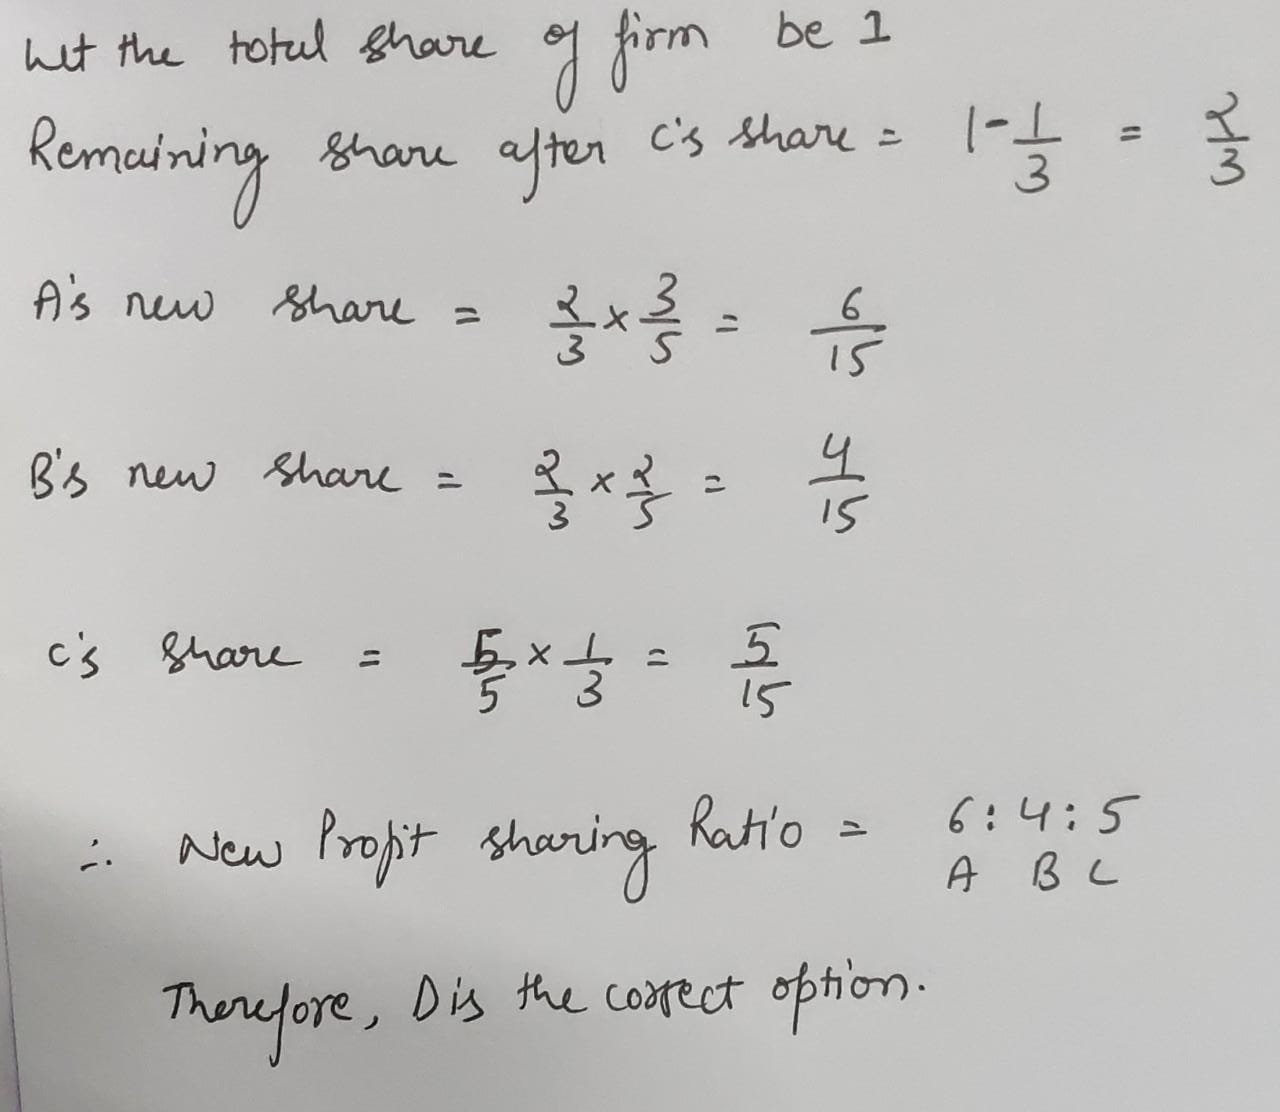 Let the total share of firm be 1
Remaining share after C's share = 1 - 1/3 = 2/3
A's new share = 2/3 x 3/5 = 6/15
B's new share = 2/3 x 2/5 = 4/15
C's share = 5/5 x 1/3 = 5/15
∴ New Profit sharing Ratio = 6 : 4 : 5
A B C
Therefore, D is the correct option.